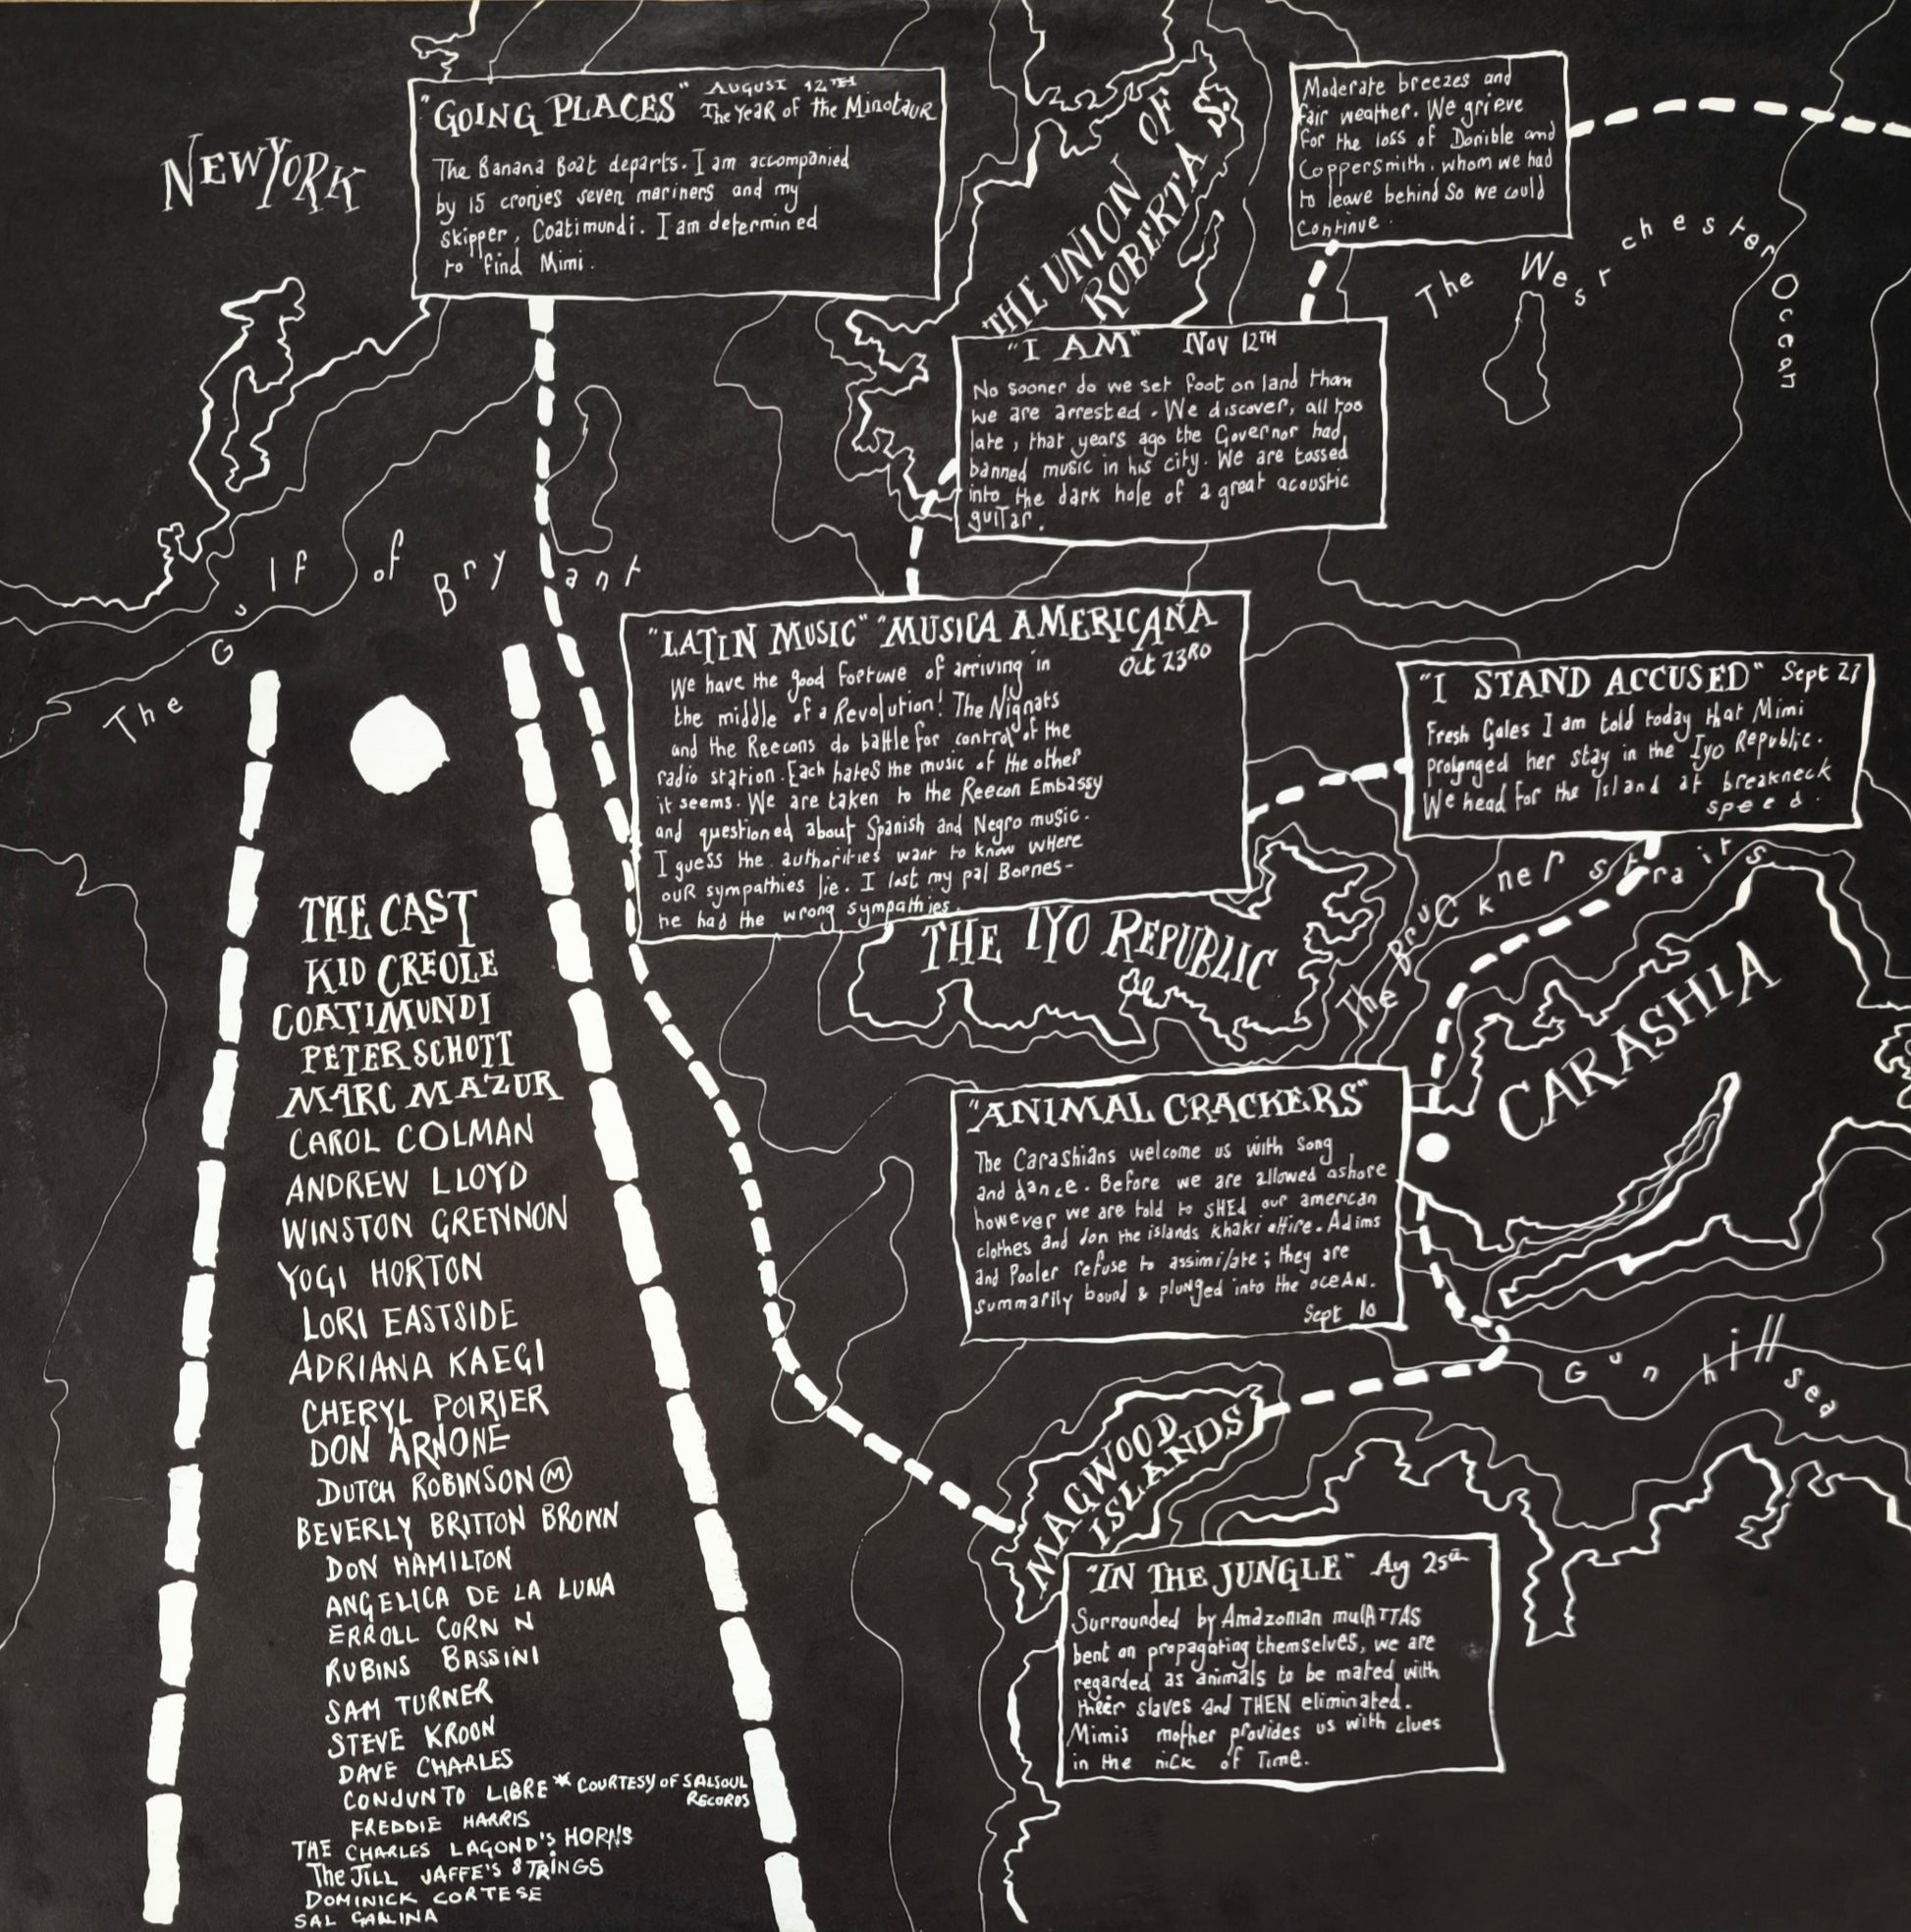 NEW YORK
"GOING PLACES" AUGUST 12TH
The YeaR of the MinotauR
The Banana Boat departs. I am accompanied
by 15 cronies seven mariners and my
skipper, Coatimundi. I am determined
to find Mimi.
THE UNION OF
ROBERTA S.
Moderate breezes and
fair weather. We grieve
for the loss of Donible and
Coppersmith. whom we had
to leave behind So we could
continue.
The Westchester Ocean
"I AM" Nov 12TH
No sooner do we set foot on land than
we are arrested. We discover, all too
late, that years ago the Governor had
banned music in his city. We are tossed
into the dark hole of a great acoustic
guitar.
The Gulf of Bryant
"LATIN MUSIC" "MUSICA AMERICANA
Oct 23RD
We have the good fortune of arriving in
the middle of a Revolution! The Nignats
and the Reecons do battle for control of the
radio station. Each hates the music of the other
it seems. We are taken to the Reecon Embassy
and questioned about Spanish and Negro music.
I guess the authorities want to know where
our sympathies lie. I lost my pal Bornes-
he had the wrong sympathies.
"I STAND ACCUSED" Sept 27
Fresh Gales I am told today that Mimi
prolonged her stay in the Iyo Republic.
We head for the Island at breakneck
speed.
THE IYO REPUBLIC
The Bruckner Straits
CARASHIA
"ANIMAL CRACKERS"
The Carashians welcome us with song
and dance. Before we are allowed ashore
however we are told to SHEd our american
clothes and don the islands khaki attire. Adims
and Pooler refuse to assimilate; they are
summarily bound & plunged into the oceAN.
Sept 10
Gun hill sea
MAGWOOD
ISLANDS
"IN THE JUNGLE" Aug 25th
Surrounded by Amazonian mulATTAS
bent on propagating themselves, we are
regarded as animals to be mated with
their slaves and THEN eliminated.
Mimis mother provides us with clues
in the nick of Time.
THE CAST
KID CREOLE
COATIMUNDI
PETER SCHOTT
MARC MAZUR
CAROL COLMAN
ANDREW LLOYD
WINSTON GRENNON
YOGI HORTON
LORI EASTSIDE
ADRIANA KAEGI
CHERYL POIRIER
DON ARNONE
DUTCH ROBINSON Ⓜ
BEVERLY BRITTON BROWN
DON HAMILTON
ANGELICA DE LA LUNA
ERROLL CORN N
RUBINS BASSINI
SAM TURNER
STEVE KROON
DAVE CHARLES
CONJUNTO LIBRE * COURTESY OF SALSOUL
RECORDS
FREDDIE HARRIS
THE CHARLES LAGOND'S HORNS
The JILL JAFFE'S STRINGS
DOMINICK CORTESE
SAL GALLINA